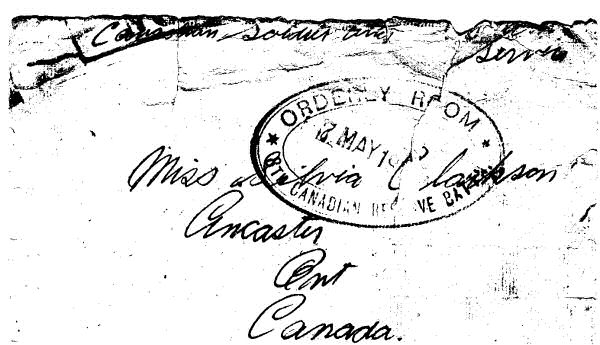 Canadian soldier
Service
ORDERLY ROOM
MAY
8TH CANADIAN RESERVE
Miss Silvia Clarkson
Ancaster
Ont
Canada.